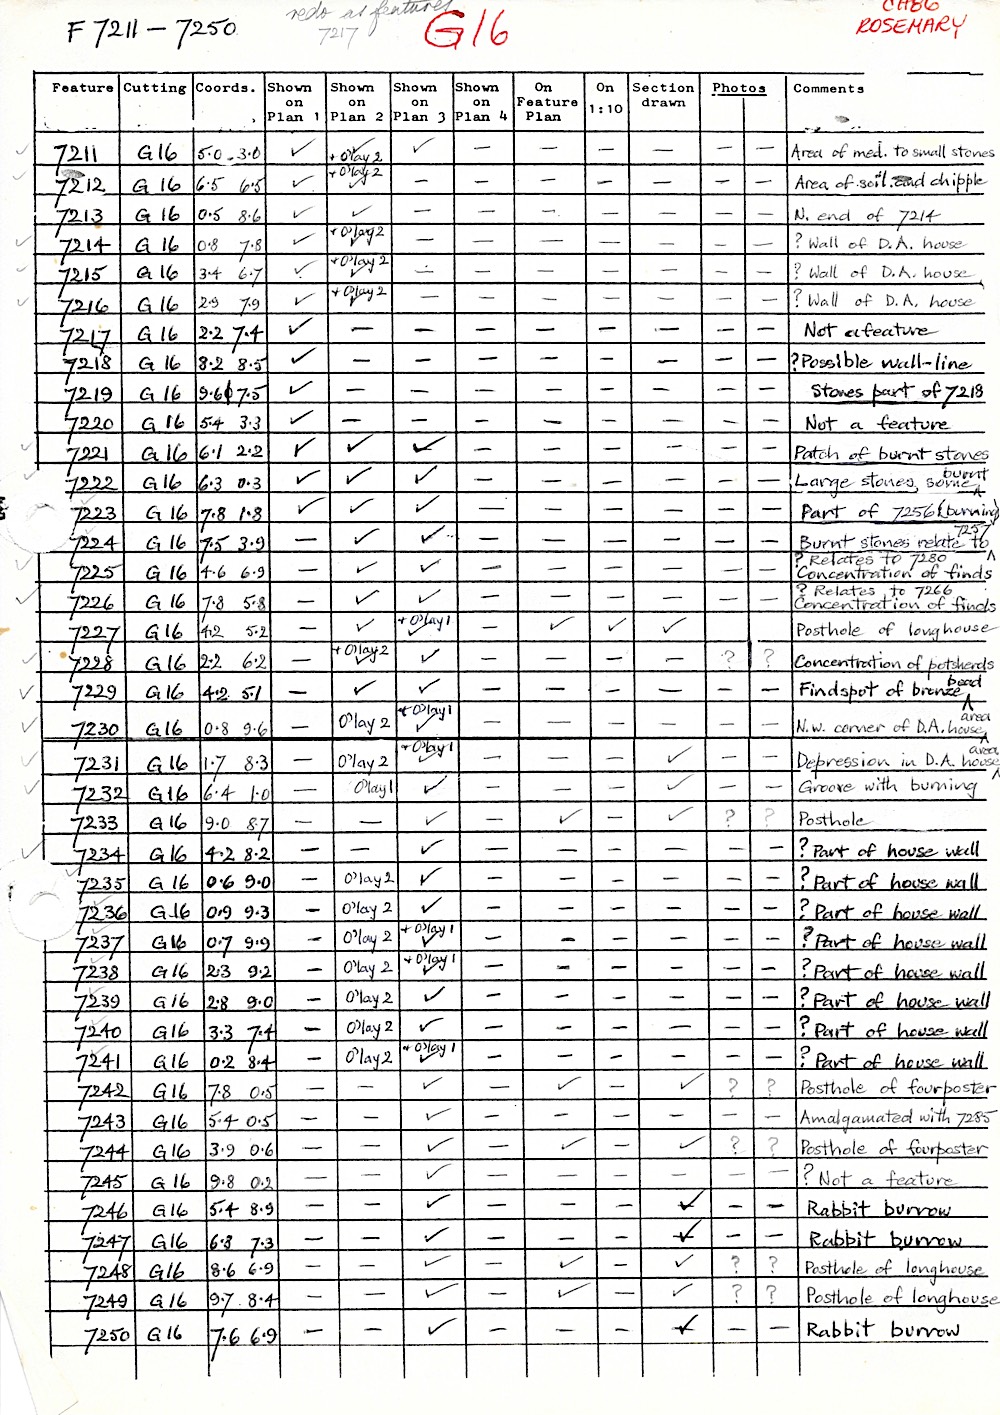 redo as features
7217
F 7211 – 7250
G16
CH86
ROSEMARY
Feature Cutting Coords. Shown on Plan 1 Shown on Plan 2 Shown on Plan 3 Shown on Plan 4 On Feature Plan On 1:10 Section drawn Photos Comments
7211 G16 5.0 3.0 ✓ + O'lay 2 ✓ — — — — — — Area of med. to small stones
7212 G16 6.5 6.5 ✓ + O'lay 2 ✓ — — — — — — — Area of soil and chipple
7213 G16 0.5 8.6 ✓ ✓ — — — — — — — N. end of 7214
7214 G16 0.8 7.8 ✓ + O'lay 2 ✓ — — — — — — — ? Wall of D.A. house
7215 G16 3.4 6.7 ✓ + O'lay 2 ✓ — — — — — — — ? Wall of D.A. house
7216 G16 2.9 7.9 ✓ + O'lay 2 ✓ — — — — — — — ? Wall of D.A. house
7217 G16 2.2 7.4 ✓ — — — — — — — — Not a feature
7218 G16 8.2 8.5 ✓ — — — — — — — — ? Possible wall-line
7219 G16 9.6 7.5 ✓ — — — — — — — — Stones part of 7218
7220 G16 5.4 3.3 ✓ — — — — — — — — Not a feature
7221 G16 6.1 2.2 ✓ ✓ ✓ — — — — — — Patch of burnt stones
7222 G16 6.3 0.3 ✓ ✓ ✓ — — — — — — Large stones, some burnt
7223 G16 7.8 1.8 ✓ ✓ ✓ — — — — — — Part of 7256 (burning)
7224 G16 7.5 3.9 — ✓ ✓ — — — — — — Burnt stones relate to 7257
7225 G16 4.6 6.9 — ✓ ✓ — — — — — — ? Relates to 7280 Concentration of finds
7226 G16 7.8 5.8 — ✓ ✓ — — — — — — ? Relates to 7266 Concentration of finds
7227 G16 4.2 5.2 — ✓ + O'lay 1 — ✓ ✓ ✓ Posthole of longhouse
7228 G16 2.2 6.2 — + O'lay 2 ✓ ✓ — — — — ? ? Concentration of potsherds
7229 G16 4.2 5.1 — ✓ ✓ — — — — — — Findspot of bronze bead
7230 G16 0.8 9.6 — O'lay 2 + O'lay 1 ✓ — — — — — — N.W. corner of D.A. house area
7231 G16 1.7 8.3 — O'lay 2 + O'lay 1 ✓ — — — ✓ — — Depression in D.A. house area
7232 G16 6.4 1.0 — O'lay 1 ✓ — — — ✓ — — Groove with burning
7233 G16 9.0 8.7 — — ✓ — ✓ — ✓ ? ? Posthole
7234 G16 4.2 8.2 — — ✓ — — — — — — ? Part of house wall
7235 G16 0.6 9.0 — O'lay 2 ✓ — — — — — — ? Part of house wall
7236 G16 0.9 9.3 — O'lay 2 ✓ — — — — — — ? Part of house wall
7237 G16 0.7 9.9 — O'lay 2 + O'lay 1 ✓ — — — — — — ? Part of house wall
7238 G16 2.3 9.2 — O'lay 2 + O'lay 1 ✓ — — — — — — ? Part of house wall
7239 G16 2.8 9.0 — O'lay 2 ✓ — — — — — — ? Part of house wall
7240 G16 3.3 7.4 — O'lay 2 ✓ — — — — — — ? Part of house wall
7241 G16 0.2 8.4 — O'lay 2 + O'lay 1 ✓ — — — — — — ? Part of house wall
7242 G16 7.8 0.5 — — ✓ — ✓ — ✓ ? ? Posthole of fourposter
7243 G16 5.4 0.5 — — ✓ — — — — — — Amalgamated with 7285
7244 G16 3.9 0.6 — — ✓ — ✓ — ✓ ? ? Posthole of fourposter
7245 G16 9.8 0.2 — — ✓ — — — — — — ? Not a feature
7246 G16 5.4 8.9 — — ✓ — — — ✓ — — Rabbit burrow
7247 G16 6.3 7.3 — — ✓ — — — ✓ — — Rabbit burrow
7248 G16 8.6 6.9 — — ✓ — ✓ — ✓ ? ? Posthole of longhouse
7249 G16 9.7 8.4 — — ✓ — ✓ — ✓ ? ? Posthole of longhouse
7250 G16 7.6 6.9 — — ✓ — — — ✓ — — Rabbit burrow